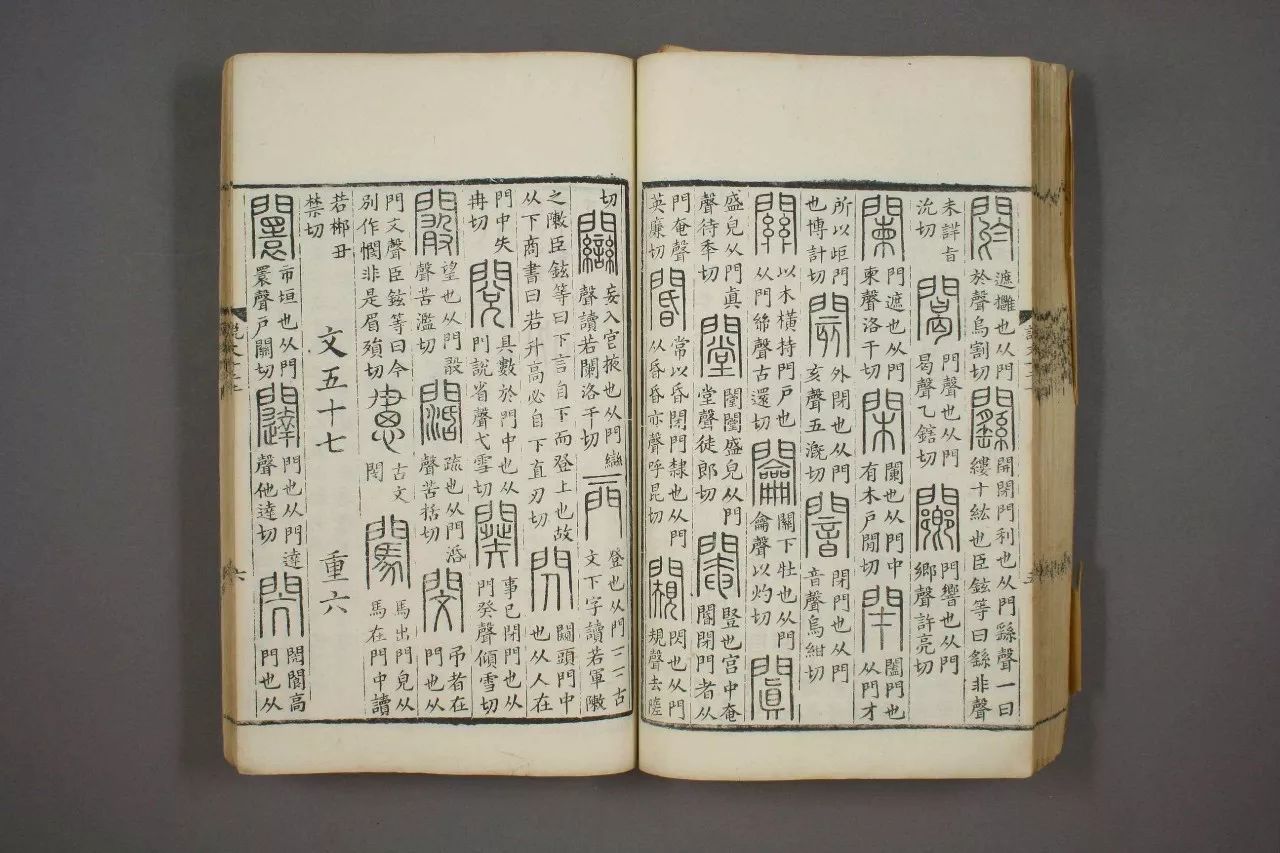 閼遮㩜也从門於聲烏割切開閉門利也从門繇聲一曰縷十紘也臣鉉等曰繇非聲
未詳旨沇切門聲也从門曷聲乙鎋切闀門響也从門鄉聲許亮切
闌門遮也从門柬聲洛干切閑闌也从門中有木戶閒切閉闔門也从門才
所以歫門也博計切閡外閉也从門亥聲五溉切闇閉門也从門音聲烏紺切
關以木橫持門戶也从門𢇅聲古還切關下牡也从門龠聲以灼切闐
盛皃从門真聲待秊切闛闛闛盛皃从門堂聲徒郎切閹豎也宮中奄閽閉門者从
門奄聲英廉切閽常以昏閉門隸也从門从昏昏亦聲呼昆切闚閃也从門規聲去隓切
切妄入宮掖也从門䜌聲讀若闌洛干切登也从門二二古文下字讀若軍敶
之敶臣鉉等曰下言自下而登上也故从下商書曰若升高必自下直刃切閃闚頭門中也从人在
門中失冉切閱具數於門中也从門說省聲弋雪切闋事已閉門也从門癸聲傾雪切
闞望也从門𢽤聲苦濫切闊疏也从門𣴠聲苦括切閔弔者在門也从
門文聲臣鉉等曰今別作憫非是眉殞切古文閔闖馬出門皃从馬在門中讀
若郴丑禁切
文五十七 重六
闤市垣也从門睘聲戶關切闥門也从門達聲他達切閌閌閬高門也从